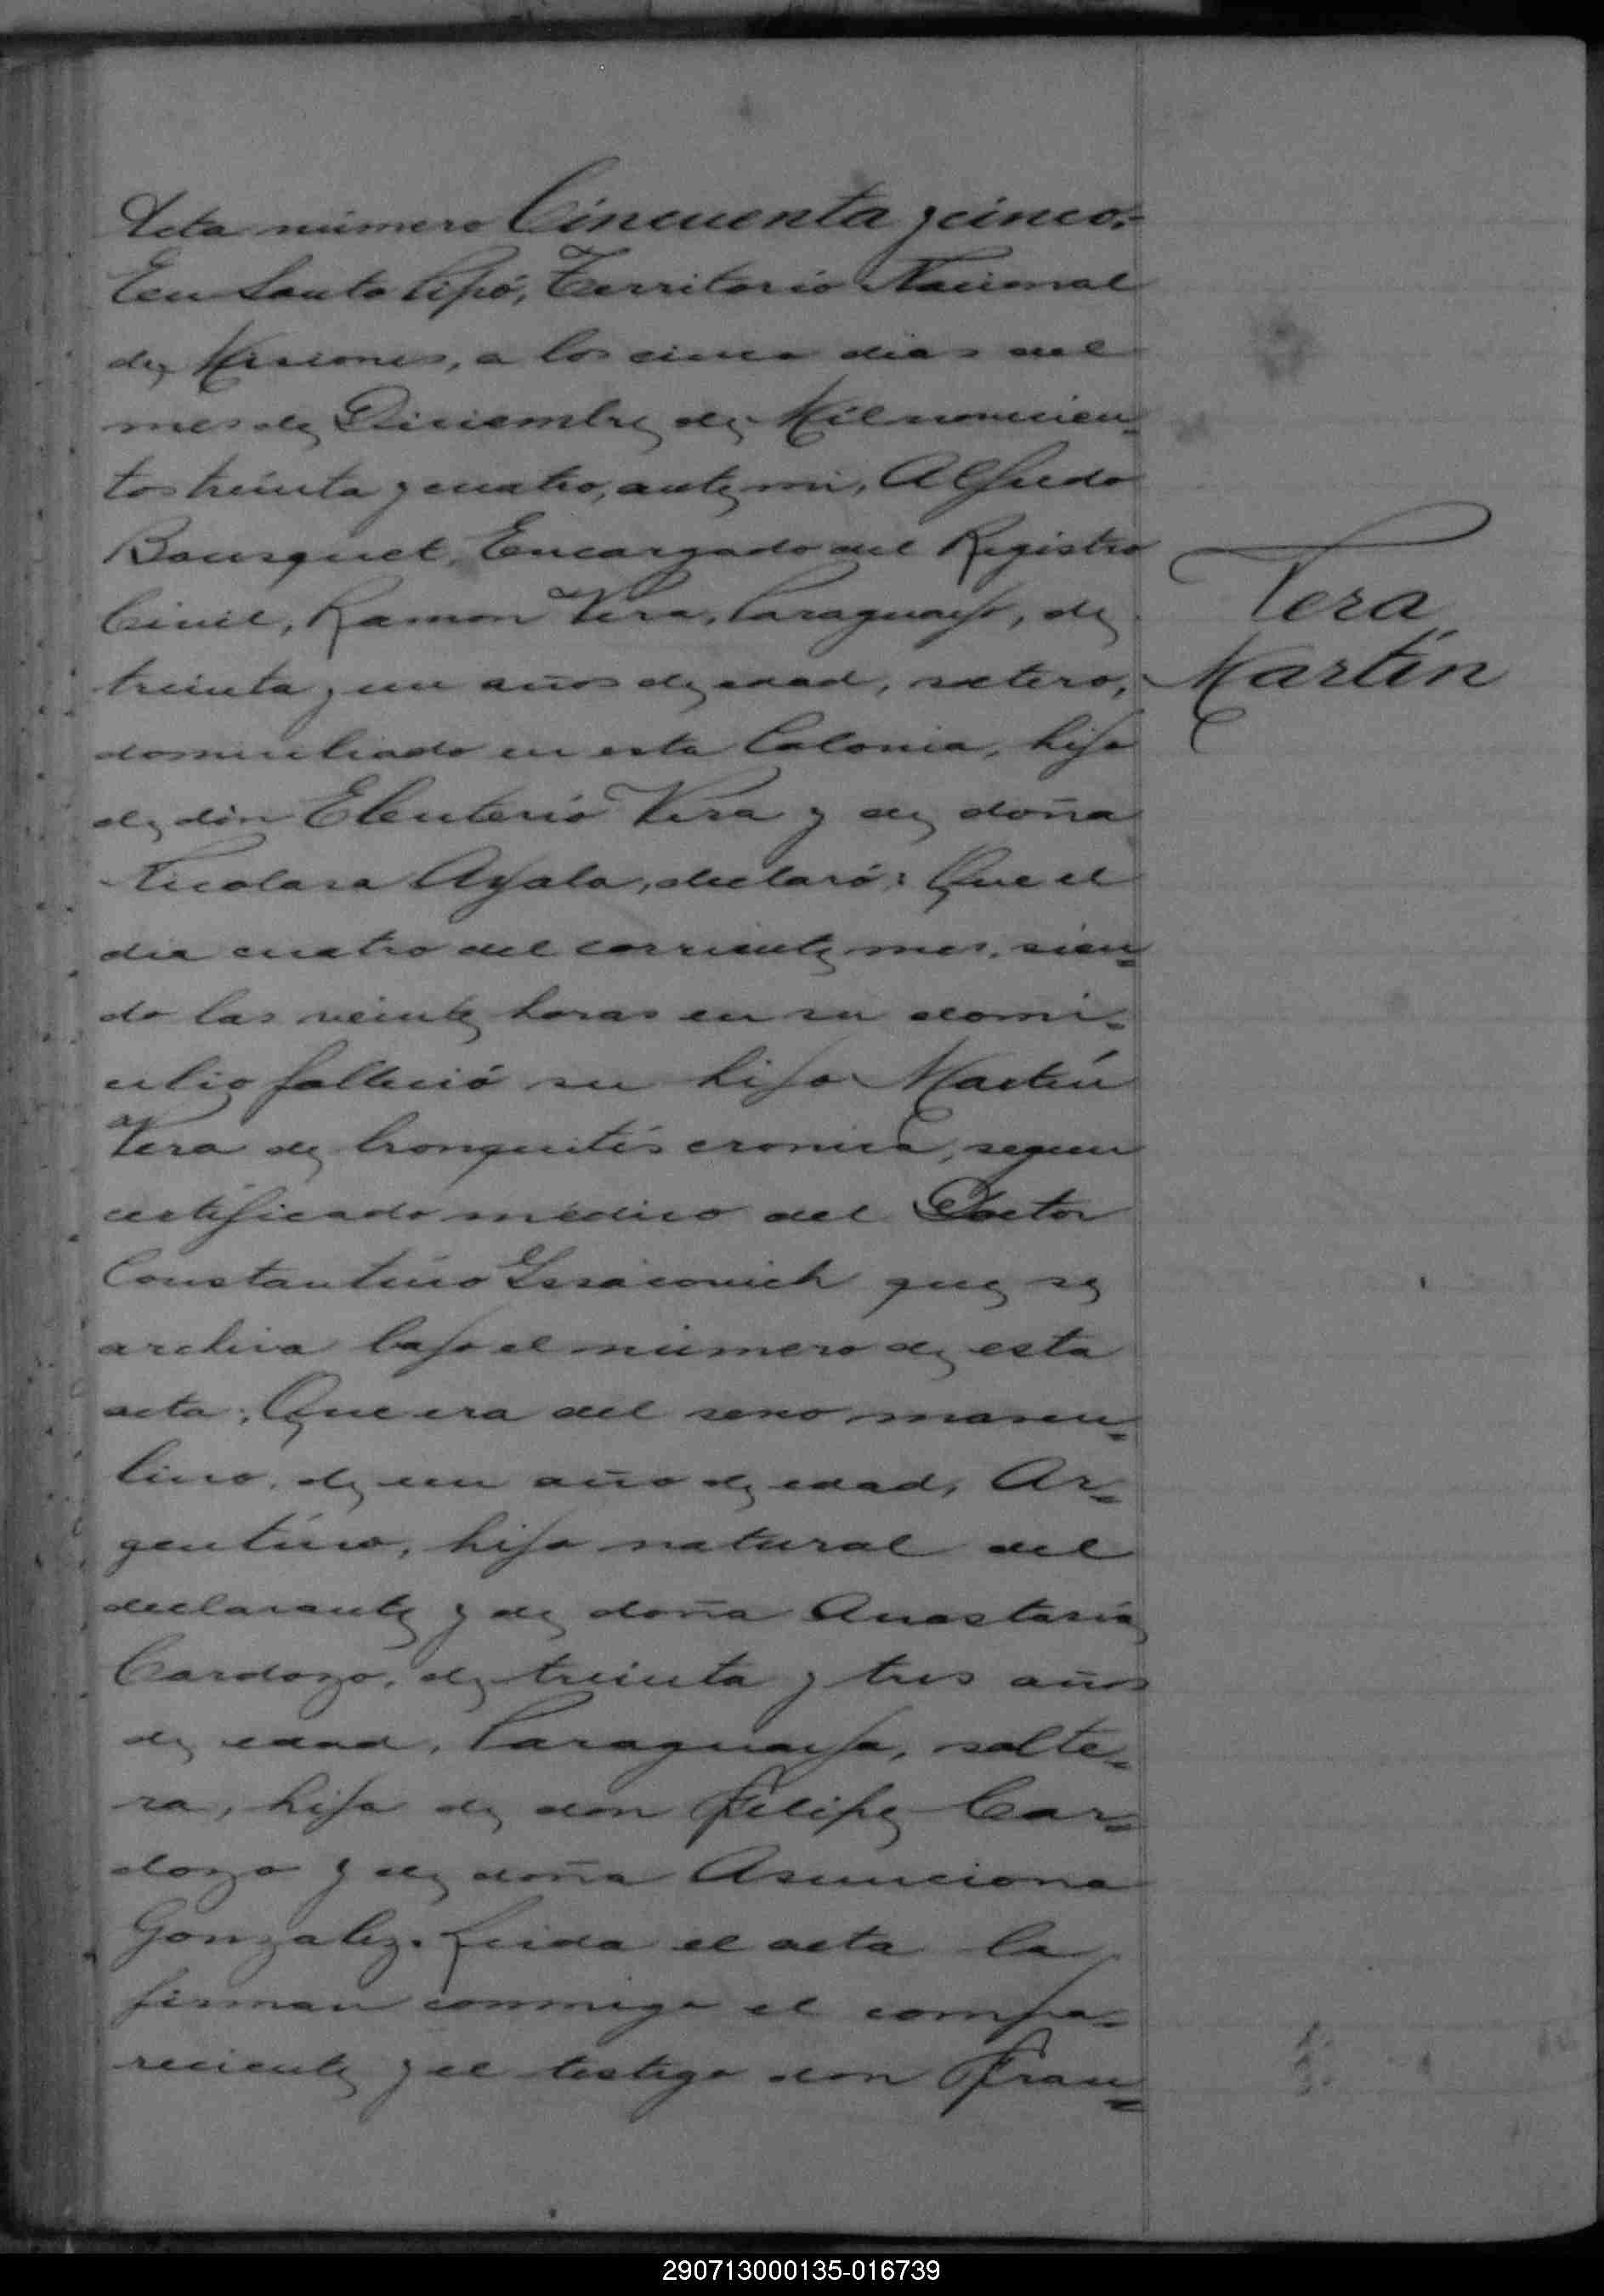 Acta número Cincuenta y cinco.=
En Santo Pipó, Territorio Nacional
de Misiones, a los cinco dias del
mes de Diciembre de Mil novecien=
tos treinta y cuatro, ante mi, Alfredo
Bousquet, Encargado del Registro
Civil, Ramon Vera, Paraguayo, de
treinta y un años de edad, soltero,
domiciliado en esta Colonia, hijo
de don Eleuterio Vera y de doña
Nicolasa Ayala, declaró: Que el
dia cuatro del corriente mes, sien=
do las veinte horas en su domi=
cilio falleció su hijo Martín
Vera de bronquitis cronica, segun
certificado médico del Doctor
Constantino que se
archiva bajo el número de esta
acta; Que era del sexo mascu=
lino, de un año de edad, Ar=
gentino, hijo natural del
declarante y de doña Anastasia
Cardozo, de treinta y tres años
de edad, Paraguaya, solte=
ra, hija de don Felipe Car=
dozo y de doña Asunciona
Gonzalez. Leida el acta la
firman conmigo el compa=
reciente y el testigo don Fran=
Vera
Martín
290713000135-016739